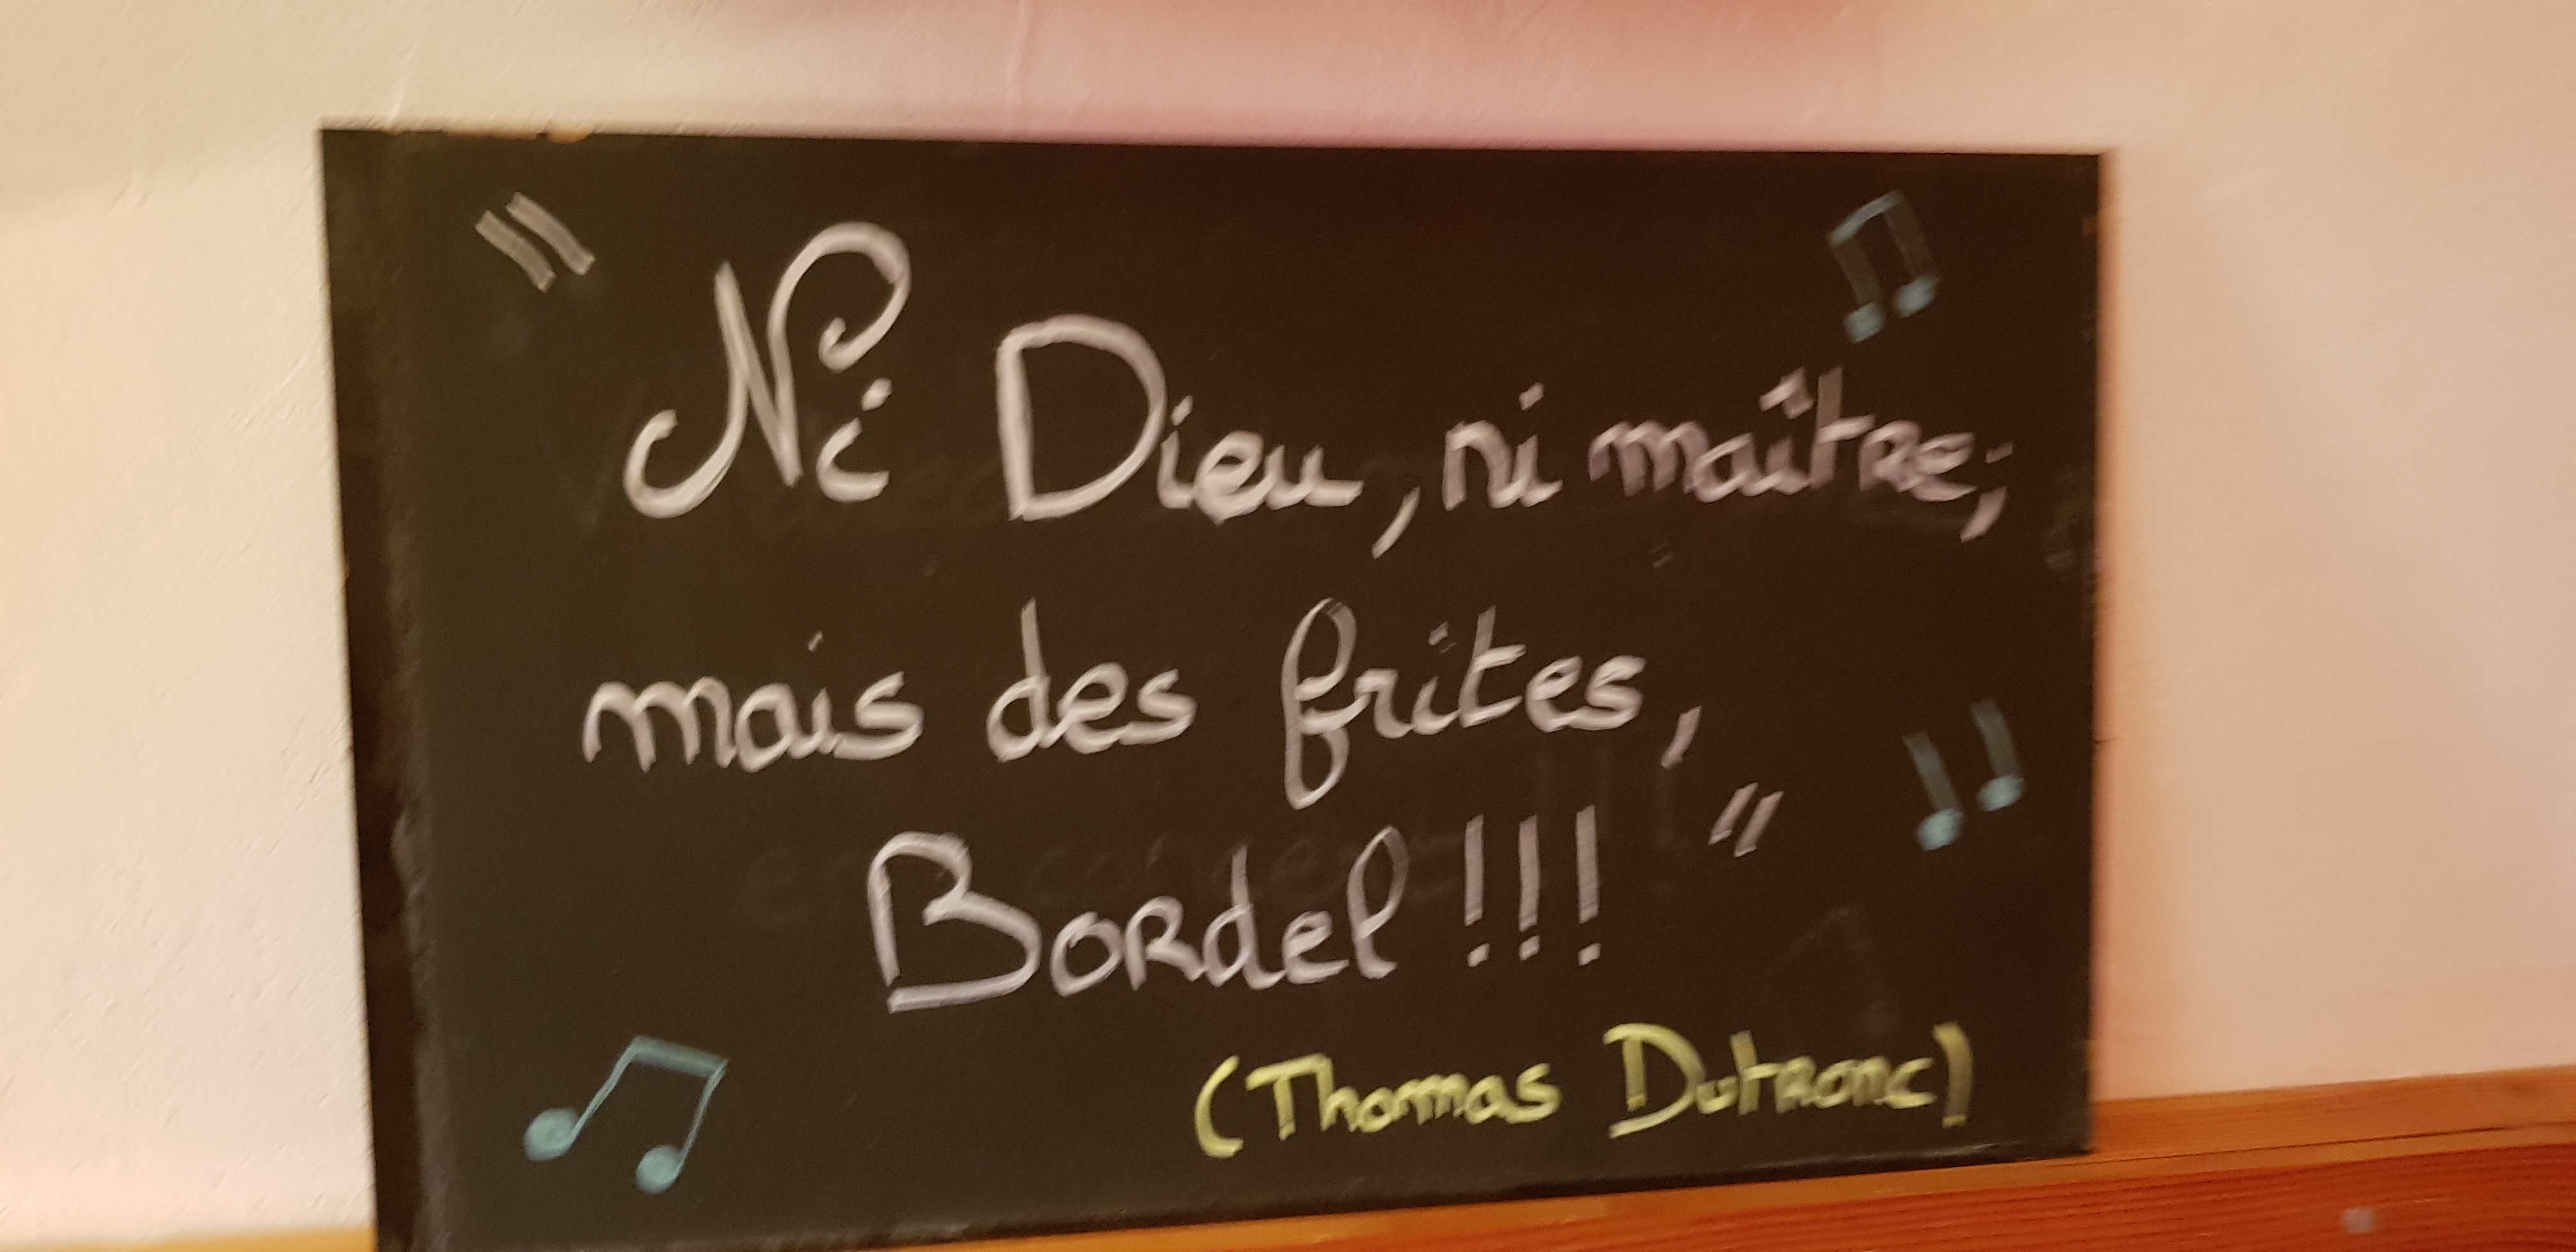 " Ni Dieu, ni maître;
mais des frites,
Bordel !!! "
(Thomas Dutronc)